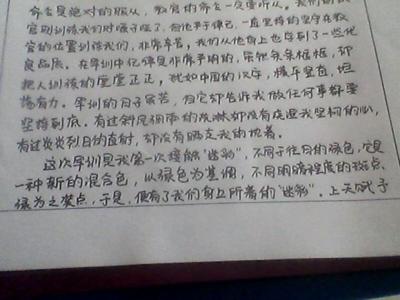 命令是绝对的服从，教官的命令一定要听从。我们的教
官别训练我们时嗓子哑了，但他严于律己，一直坚持的坚守在教
官的位置训练我们，非常辛苦。我们从他身上也学到了一些优
良品质。在军训中纪律是非常严明的，条条框框，却
把人训练的堂堂正正，犹如中国的汉字，横平竖直，坦
荡有力。军训的日子虽苦，但它却告诉我做任何事都要
坚持到底。有过斜风细雨的洗淋却没有浇退我坚树的心，
有过炎炎烈日的直射，却没有晒支我的忱着。
这次军训是我第一次接触“迷彩”，不同于往日的绿色，它是
一种新的混合色，以绿色为基调，不同明暗程度的斑点、
绿为之装点，于是，便有了我们身上所着的“迷彩”。上天赋予